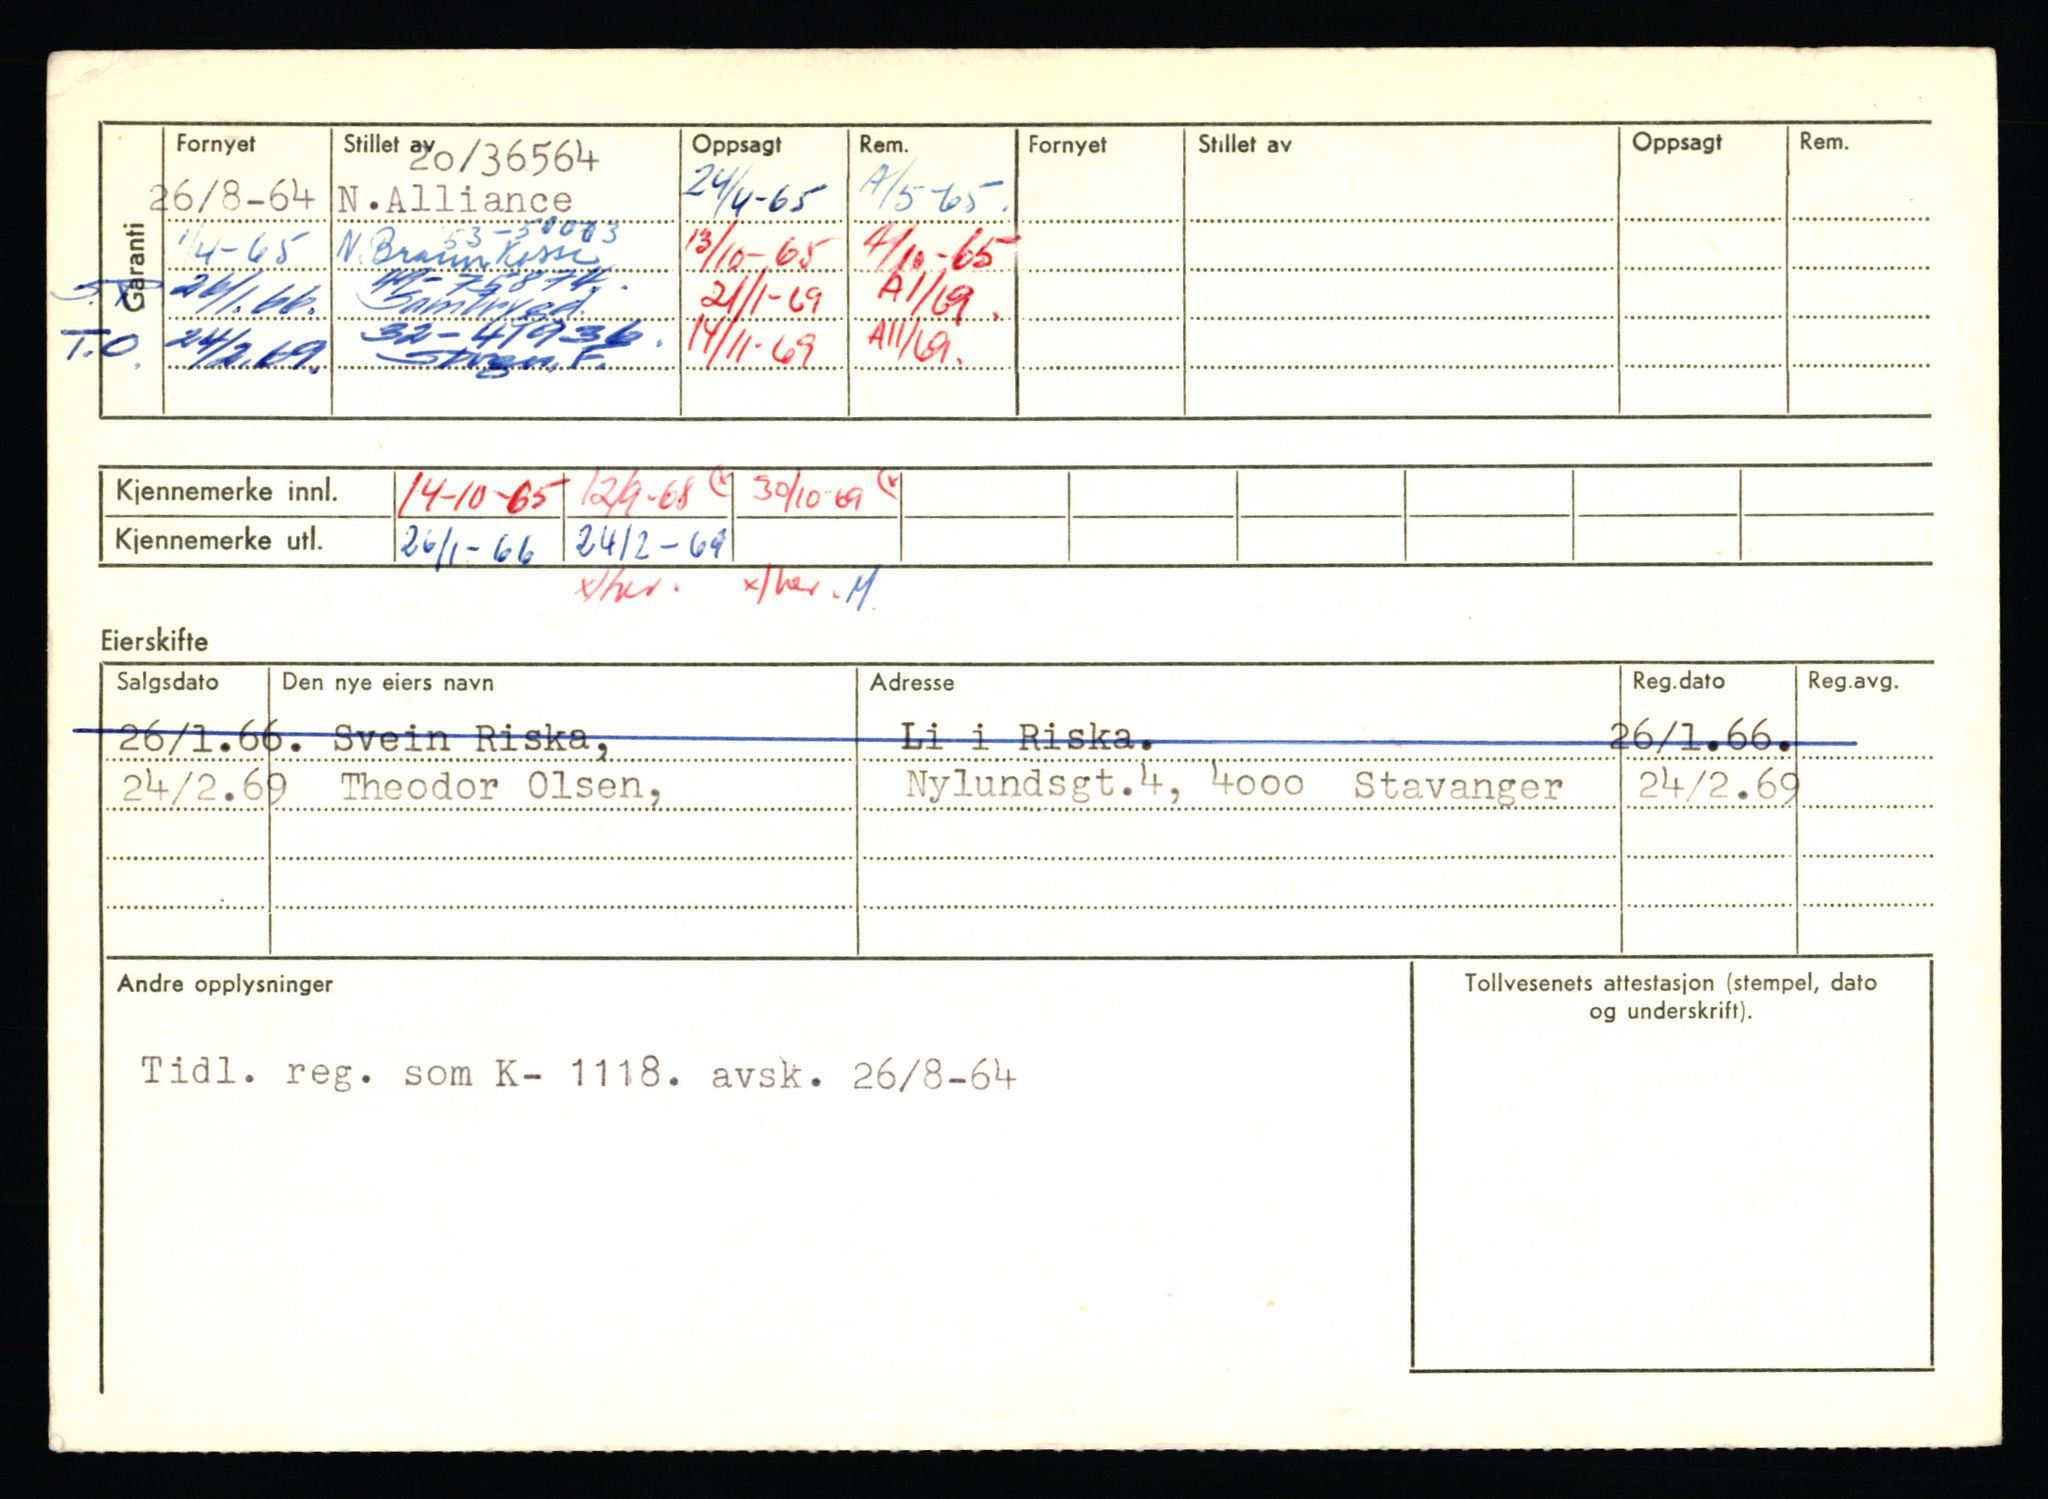 Garanti
Fornyet Stillet av Oppsagt Rem. Fornyet Stillet av Oppsagt Rem.
20/36564
26/8-64 N.Alliance 24/4-65 A/5-65.
53-50003
1/4-65 N. Brann Kasse 13/10-65 A/10-65
26/1.66. Samtrygd. 21/1-69 A1/69.
T.O. 24/2.69. 32-41936. 14/11-69 A11/69.
Kjennemerke innl. 14-10-65 12/9-68 (x 30/10-69 (x
Kjennemerke utl. 26/1-66 24/2-69
x/her. x/her. M.
Eierskifte
Salgsdato Den nye eiers navn Adresse Reg.dato Reg.avg.
26/1.66. Svein Riska, Li i Riska. 26/1.66.
24/2.69 Theodor Olsen, Nylundsgt.4, 4000 Stavanger 24/2.69
Andre opplysninger
Tollvesenets attestasjon (stempel, dato
og underskrift).
Tidl. reg. som K- 1118. avsk. 26/8-64